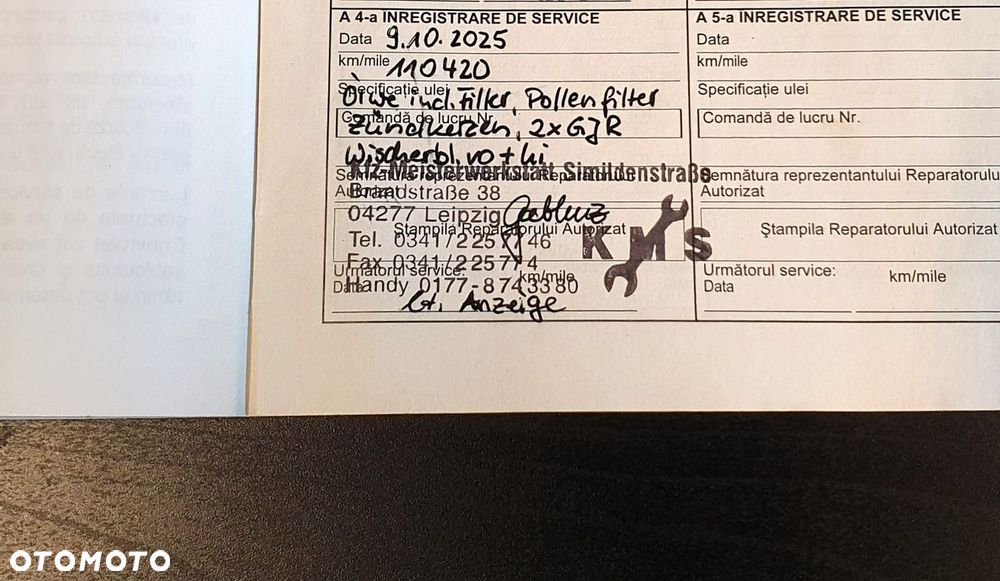 A 4-a INREGISTRARE DE SERVICE
Data 9.10.2025
km/mile 110420
Specificație ulei
Ölwe incl. Filter, Pollenfilter
Comandă de lucru Nr.
Zündkerzen, 2xGJR
Wischerbl. vo + hi
Kfz-Meisterwerkstatt Simildenstraße
Semnătura reprezentantului Reparatorului
Autorizat
Brandstraße 38
04277 Leipzig
Ștampila Reparatorului Autorizat
Tel. 0341/2257746
KMS
Fax 0341/225774
Următorul service:
Data km/mile
Handy 0177-8743380
lt. Anzeige
A 5-a INREGISTRARE DE SERVICE
Data
km/mile
Specificație ulei
Comandă de lucru Nr.
Semnătura reprezentantului Reparatorului
Autorizat
Ștampila Reparatorului Autorizat
Următorul service:
Data km/mile
OTOMOTO